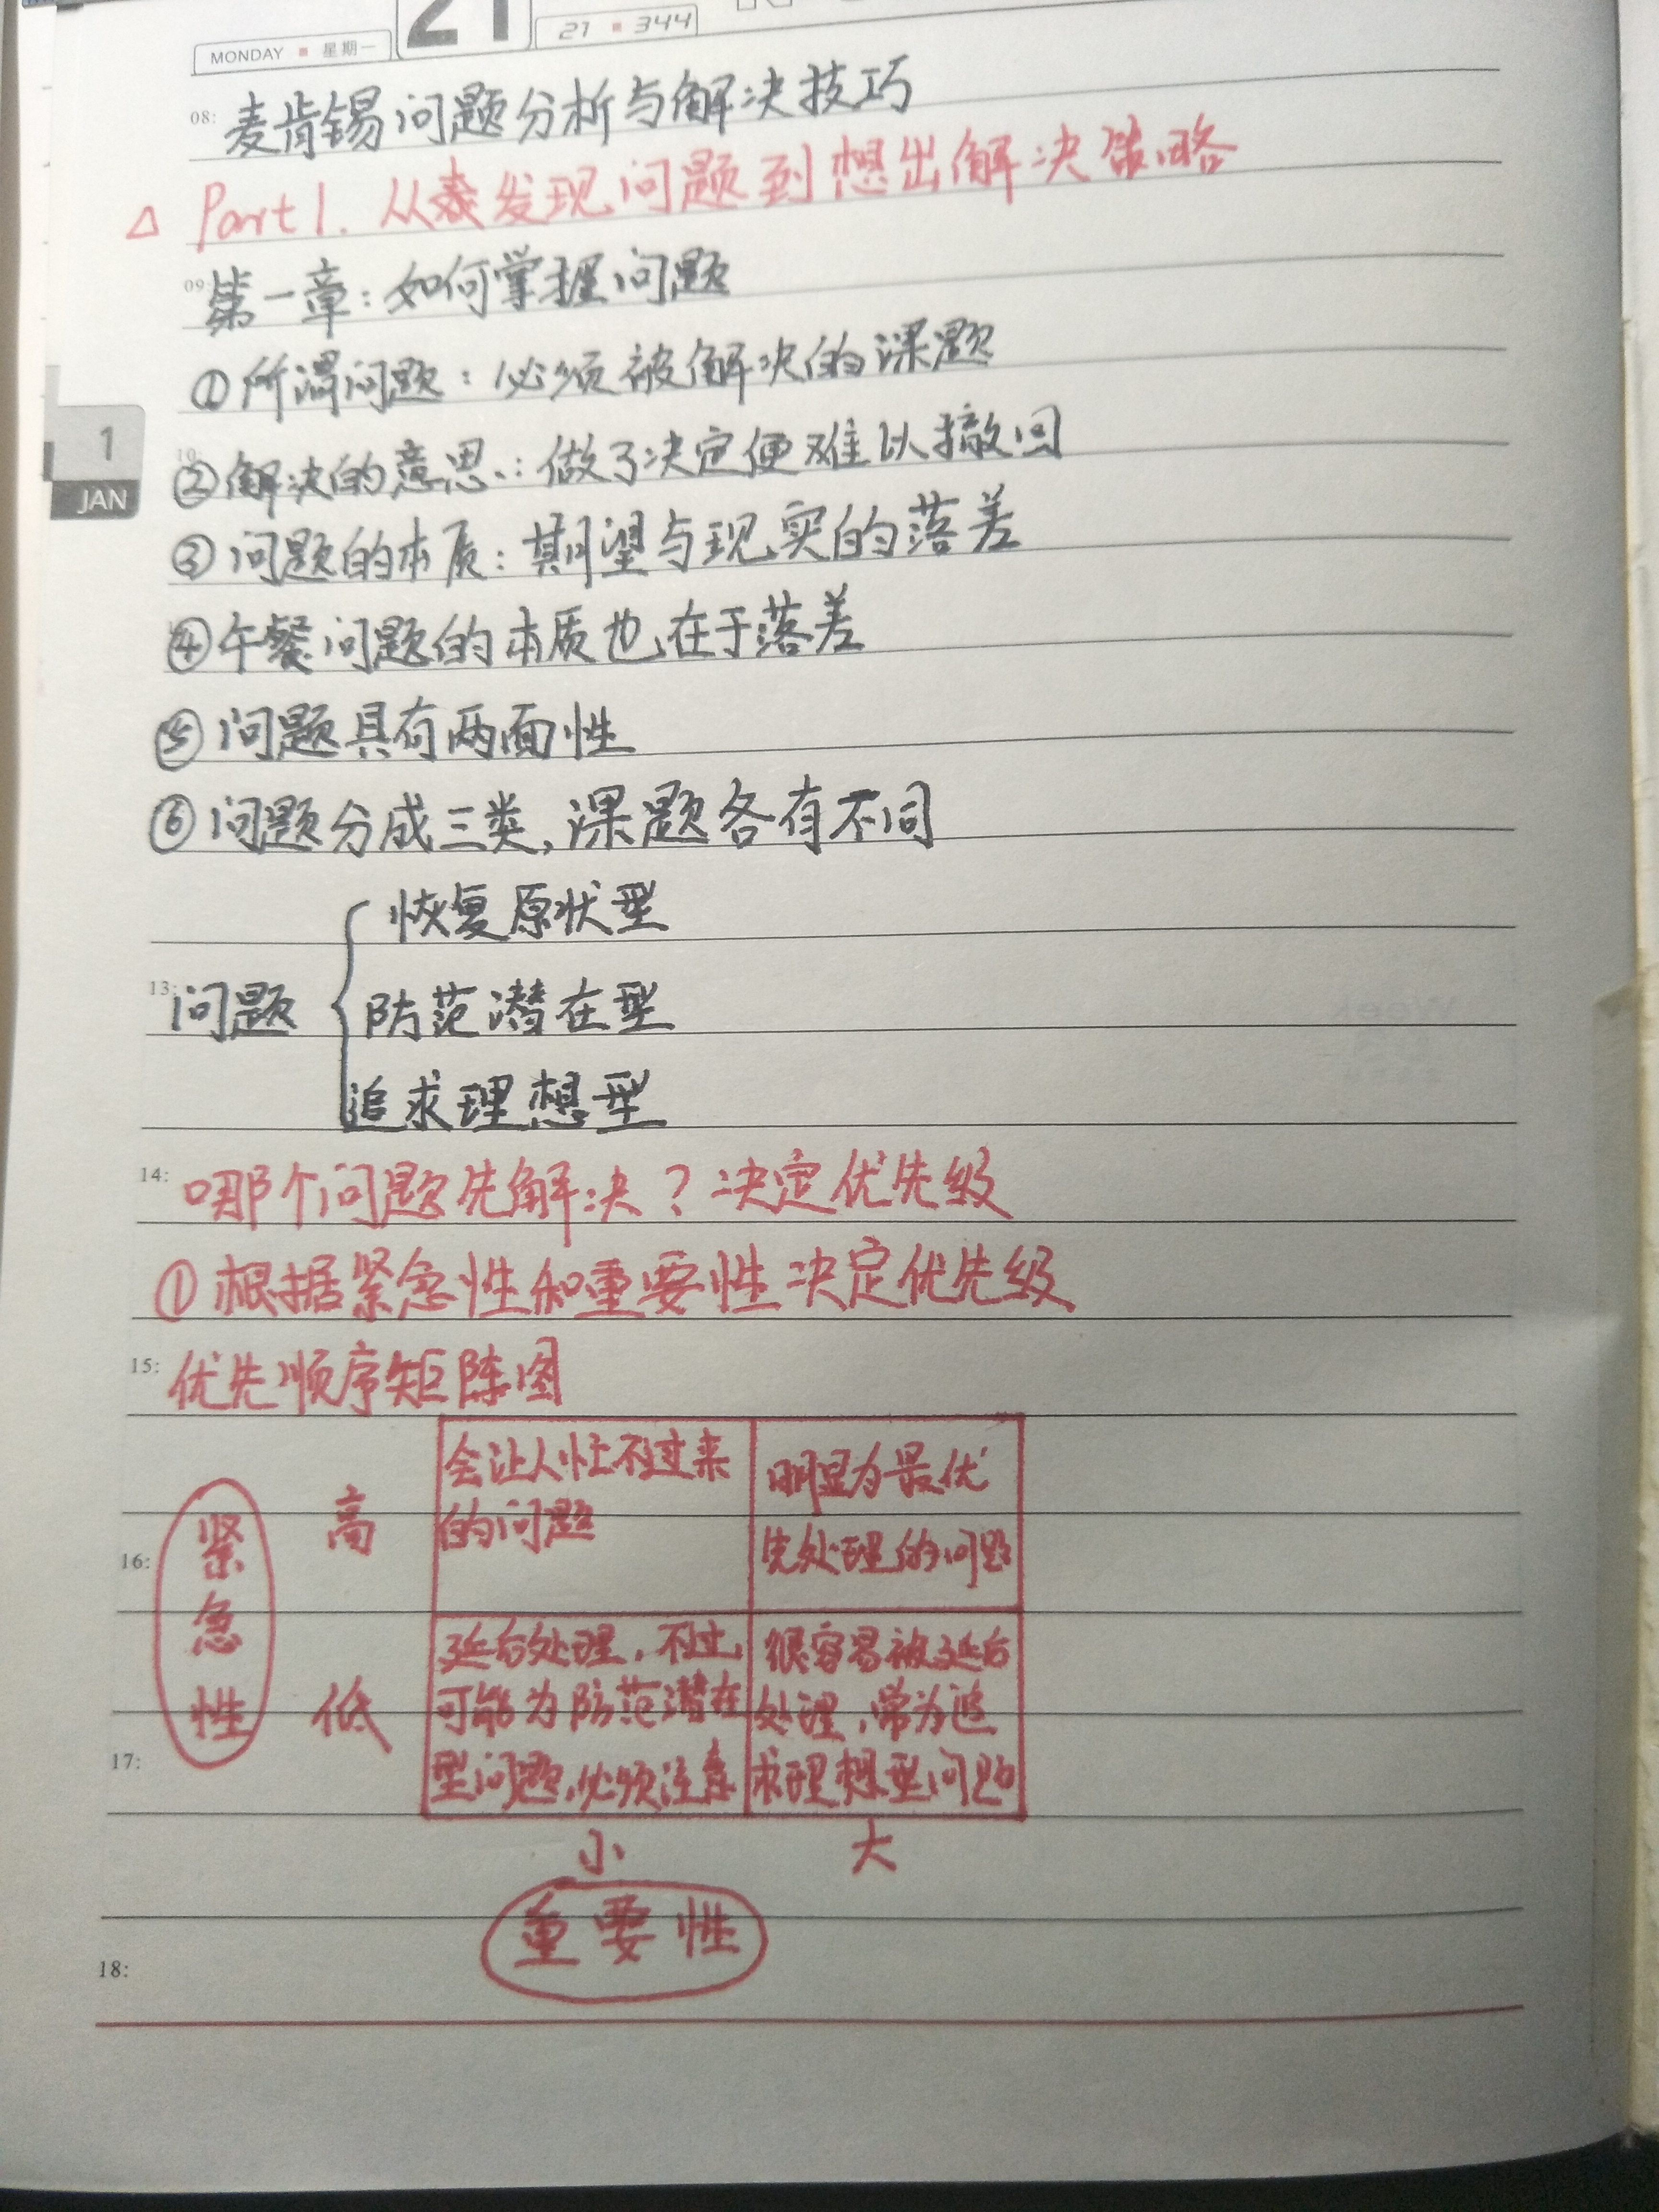 MONDAY ▪ 星期一
21
21 ▪ 344
08:
麦肯锡问题分析与解决技巧
△ Part 1. 从发现问题到想出解决策略
09:
第一章:如何掌握问题
①所谓问题:必须被解决的课题
1
JAN
②解决的意思:做了决定便难以撤回
③问题的本质:期望与现实的落差
④午餐问题的本质也在于落差
⑤问题具有两面性
⑥问题分成三类,课题各有不同
恢复原状型
13:
问题 { 防范潜在型
追求理想型
14:
哪个问题先解决?决定优先级
①根据紧急性和重要性决定优先级
15:
优先顺序矩阵图
紧急性
高
会让人忙不过来
的问题
明显为最优
先处理的问题
16:
低
延后处理,不过,
可能为防范潜在
型问题,必须注意
很容易被延后
处理,常为追
求理想型问题
17:
小 大
重要性
18: